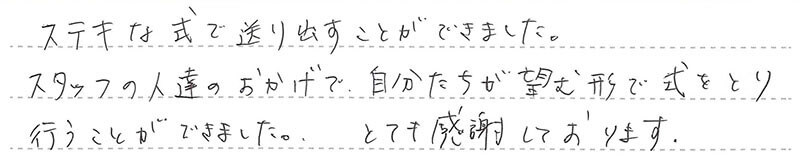 ステキな式で送り出すことができました。
スタッフの人達のおかげで、自分たちが望む形で式をとり
行うことができました。. とても感謝しております.